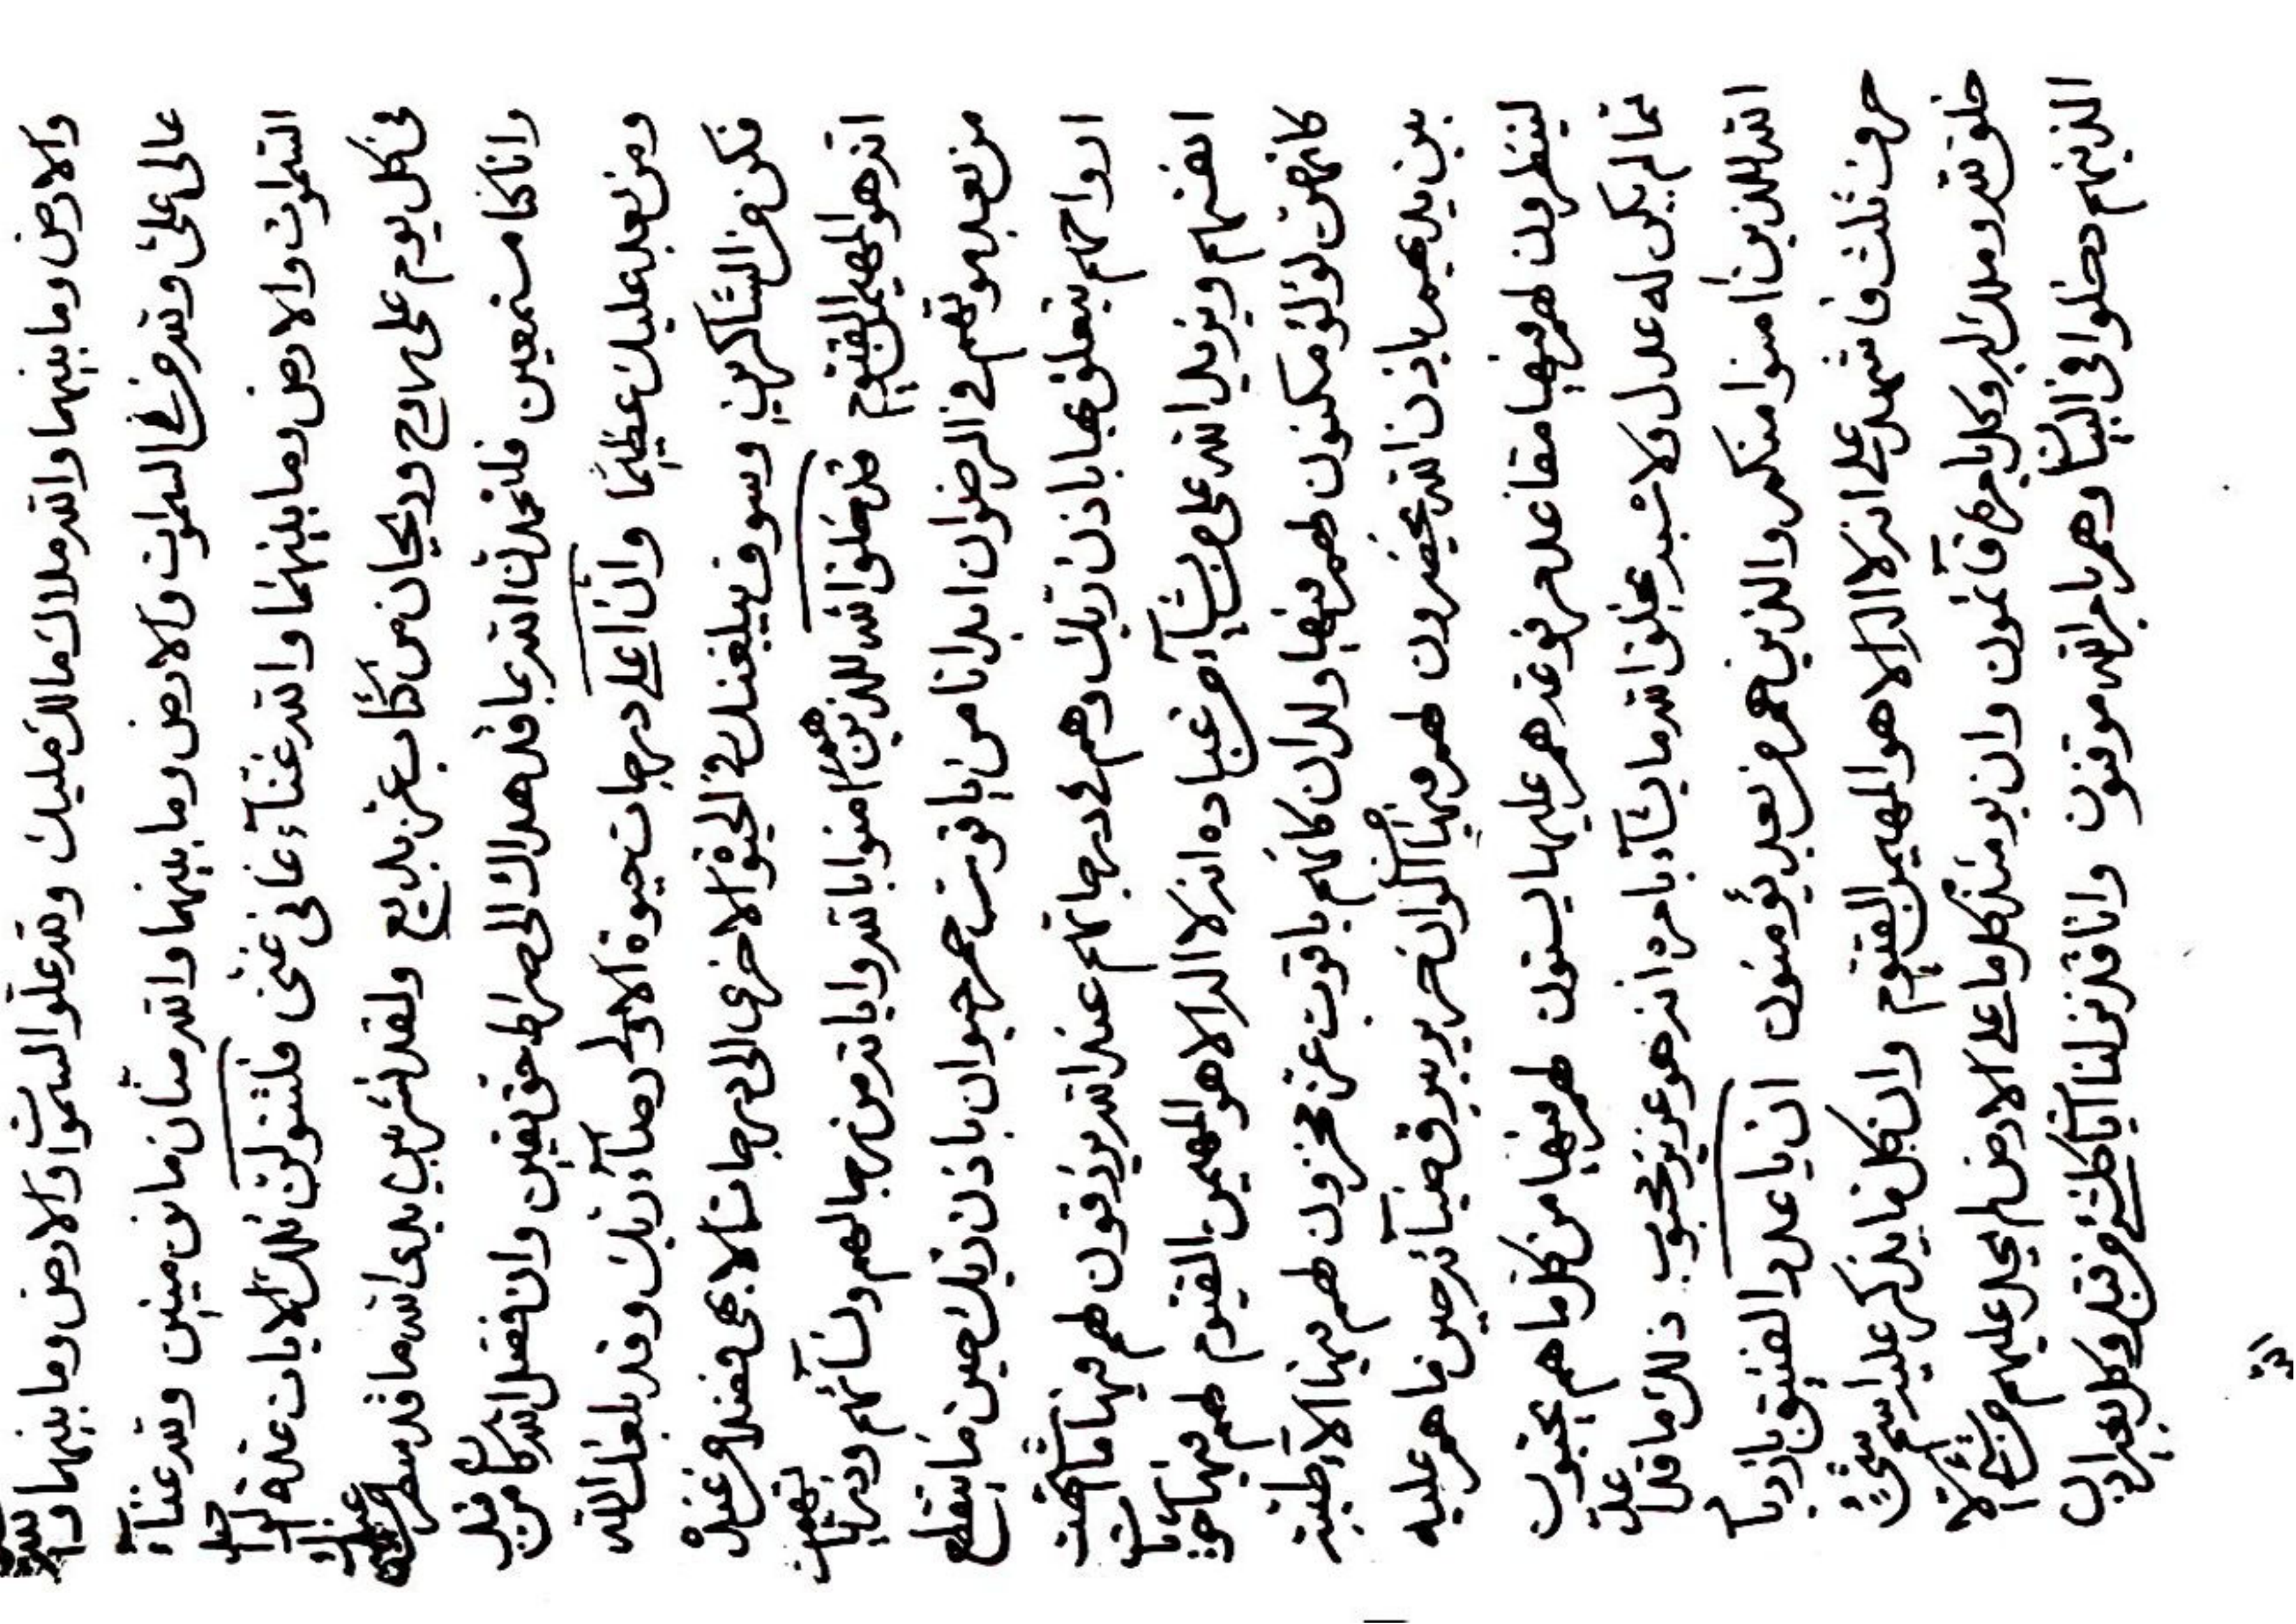 والارض وما بينهما والله ملاك مالك مليك ولله علو السموات والارض وما بينهما
عالى على ولله من في السموات والارض وما بينهما والله منان مانن منين ولله غناء
السموات والارض وما بينهما والله غناء غانى غنى فلتتلون تلك الايات عدة
فى كل يوم على روح وريحان من كتاب عز بديع ولقد نشر بين يدى الله ما قد سطر
وانا كنا مستمعين فلتحمدن الله بما قد هداك الى صراط حق يقين وان فضل الله كان من قبل
ومن بعد عليك عظيما وان اعلى درجات حيوة الاولى رضاء ربك وقد بلغك الله
فكن من الشاكرين وسوف يبلغنك في الحيوة الاخرى الى درجات الابهى فضلا من عنده
انه هو المهيمن القيوم قد خلق الله للذين هم امنوا بالله واياته من رجالهم ونسائهم وذرياتهم
من بعد موتهم في الرضوان ابدانا من ياقوت حمر حيوان باذن ربك حين ما ينقطع
ارواحهم يتعلق بها باذن ربك وهم في درجاتهم عند الله يرزقون لهم فيها ما
انفسهم ويزيد الله على من يشاء من عباده انه لا اله الا هو المهيمن القيوم لهم فيها حوريات
كانهن لؤلؤ مكنون لهم فيها ولدان كانهم ياقوت عز مخزون لهم فيها الاء طيبة
بين يديهم باذن الله يحضرون لهم فيها اكوان حرير يبرق ضيائه حين ما هم عليه
لينظرون لهم فيها مقاعد مرفوعة هم عليها يستون لهم فيها من كل ما هم يحبون
مما لم يكن له عدل ولا شبه يخلق الله ما يشاء بامره انه هو عزيز محبوب ذلك ما قد وعد
الله للذين امنوا منكم والذين هم من بعد يؤمنون ان يا عدد الفتيق بازدياد
حرف ثلث فاشهد على انه لا اله الا هو المهيمن القيوم وان كل ما يذكر عليه اسم شيء
خلق له وملك له وكل بامره قائمون وان يومئذ كل ما على الارض لم يحل عليهم من شيء الا
الذينهم دخلوا في البيان وهم بامر الله موقنون وانا قد نزلنا من قبل وكل بعد